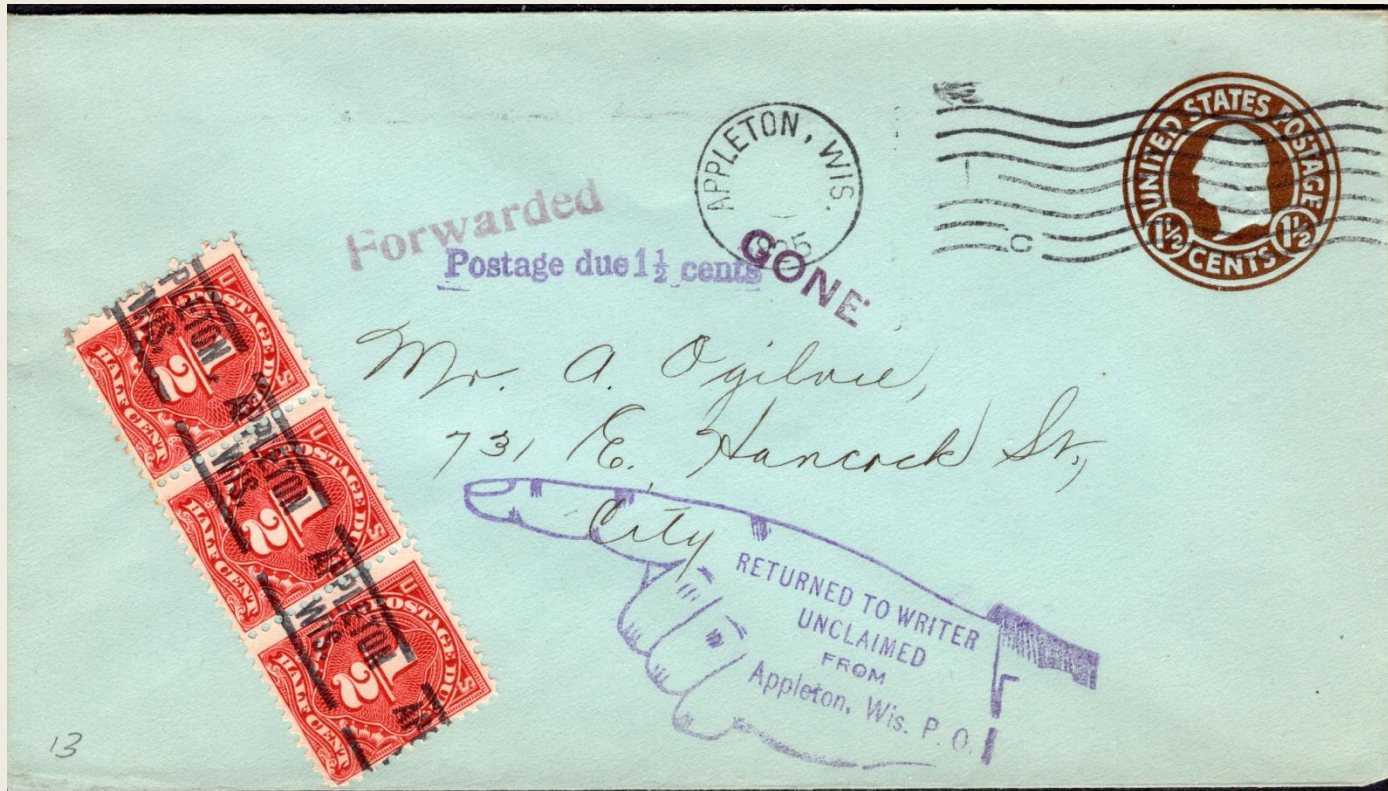 UNITED STATES POSTAGE
1½ CENTS 1½
APPLETON, WIS.
C
Forwarded
Postage due 1½ cents
GONE
Mr. A. Ogilvie,
731 E. Hancock St,
City
RETURNED TO WRITER
UNCLAIMED
FROM
Appleton, Wis. P. O.
U POSTAGE DUE S
1/2
HALF CENT
PLETON,
WIS.
U POSTAGE DUE S
1/2
HALF CENT
APPLETON
WIS.
U POSTAGE DUE S
1/2
HALF CENT
APPLETON
WIS.
AP
13